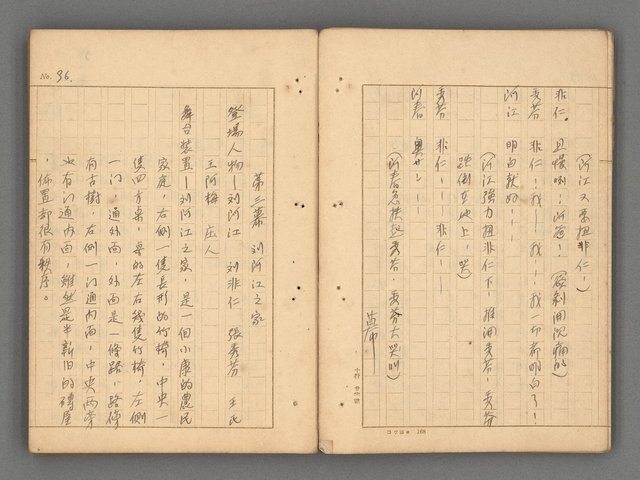 (阿江又要扭非仁！)
非仁。 且慢喲！阿首！(
秀芬 非仁！我！——我！——我一切都明白了！
阿江 明白就的！——
(阿江強力扭非仁下！推倒秀芬！秀芬
跌倒在地上！哭)
秀芬 非仁！——非仁！——
阿春 奥サン！——
(阿春急扶起秀芬 秀芬大哭叫)
幕
コクヨ 168
No. 36.
第三幕 刘阿江之家
登場人物—刘阿江 刘非仁 張秀芬 王氏
王阿梅 庄人
舞台装置—刘阿江之家，是一個小康的農民
家庭，右側一隻長形的竹椅，中央一
隻四方桌，桌的左右幾隻竹椅，左側
一门，通外面，外面是一條路，路傍
有古樹，右側一门通内面，中央两旁
也有门通内面，雖然是半新旧的磚屋
，佈置却很有秩序。